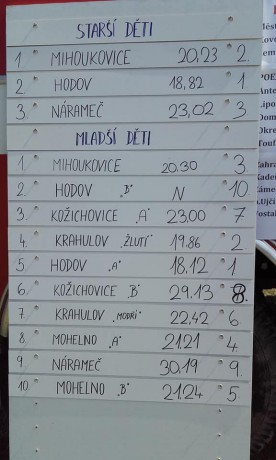 STARŠÍ DĚTI
1. MIHOUKOVICE 20,23 2.
2. HODOV 18,82 1.
3. NÁRAMEČ 23,02 3.
MLADŠÍ DĚTI
1. MIHOUKOVICE 20.30 3.
2. HODOV „B" N 10.
3. KOŽICHOVICE „A" 23,00 7
4. KRAHULOV „ŽLUTÍ" 19.86 2
5. HODOV „A" 18.12 1
6. KOŽICHOVICE „B" 29.13 8.
7. KRAHULOV „MODŘÍ" 22,42 6.
8. MOHELNO „A" 21.21 4.
9. NÁRAMEČ 30.19 9.
10. MOHELNO „B" 21.24 5.